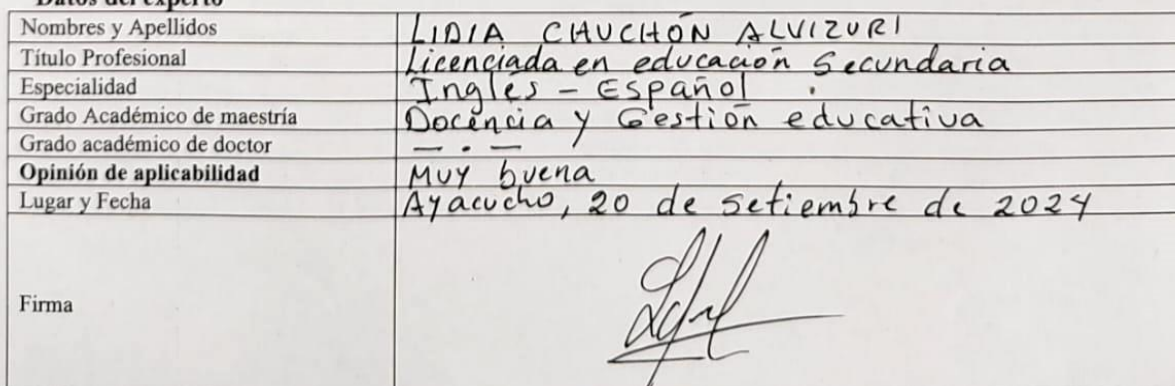 Datos del experto
Nombres y Apellidos LIDIA CHUCHÓN ALVIZURI
Título Profesional Licenciada en educación Secundaria
Especialidad Ingles - Español.
Grado Académico de maestría Docencia y Gestión educativa
Grado académico de doctor — . —
Opinión de aplicabilidad Muy buena
Lugar y Fecha Ayacucho, 20 de setiembre de 2024
Firma